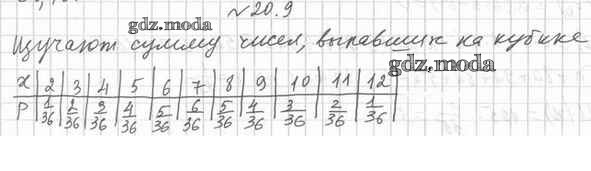 №20.9
gdz.moda
Изучают сумму чисел, выпавших на кубике
gdz.moda
x | 2 | 3 | 4 | 5 | 6 | 7 | 8 | 9 | 10 | 11 | 12
P | 1/36 | 2/36 | 3/36 | 4/36 | 5/36 | 6/36 | 5/36 | 4/36 | 3/36 | 2/36 | 1/36